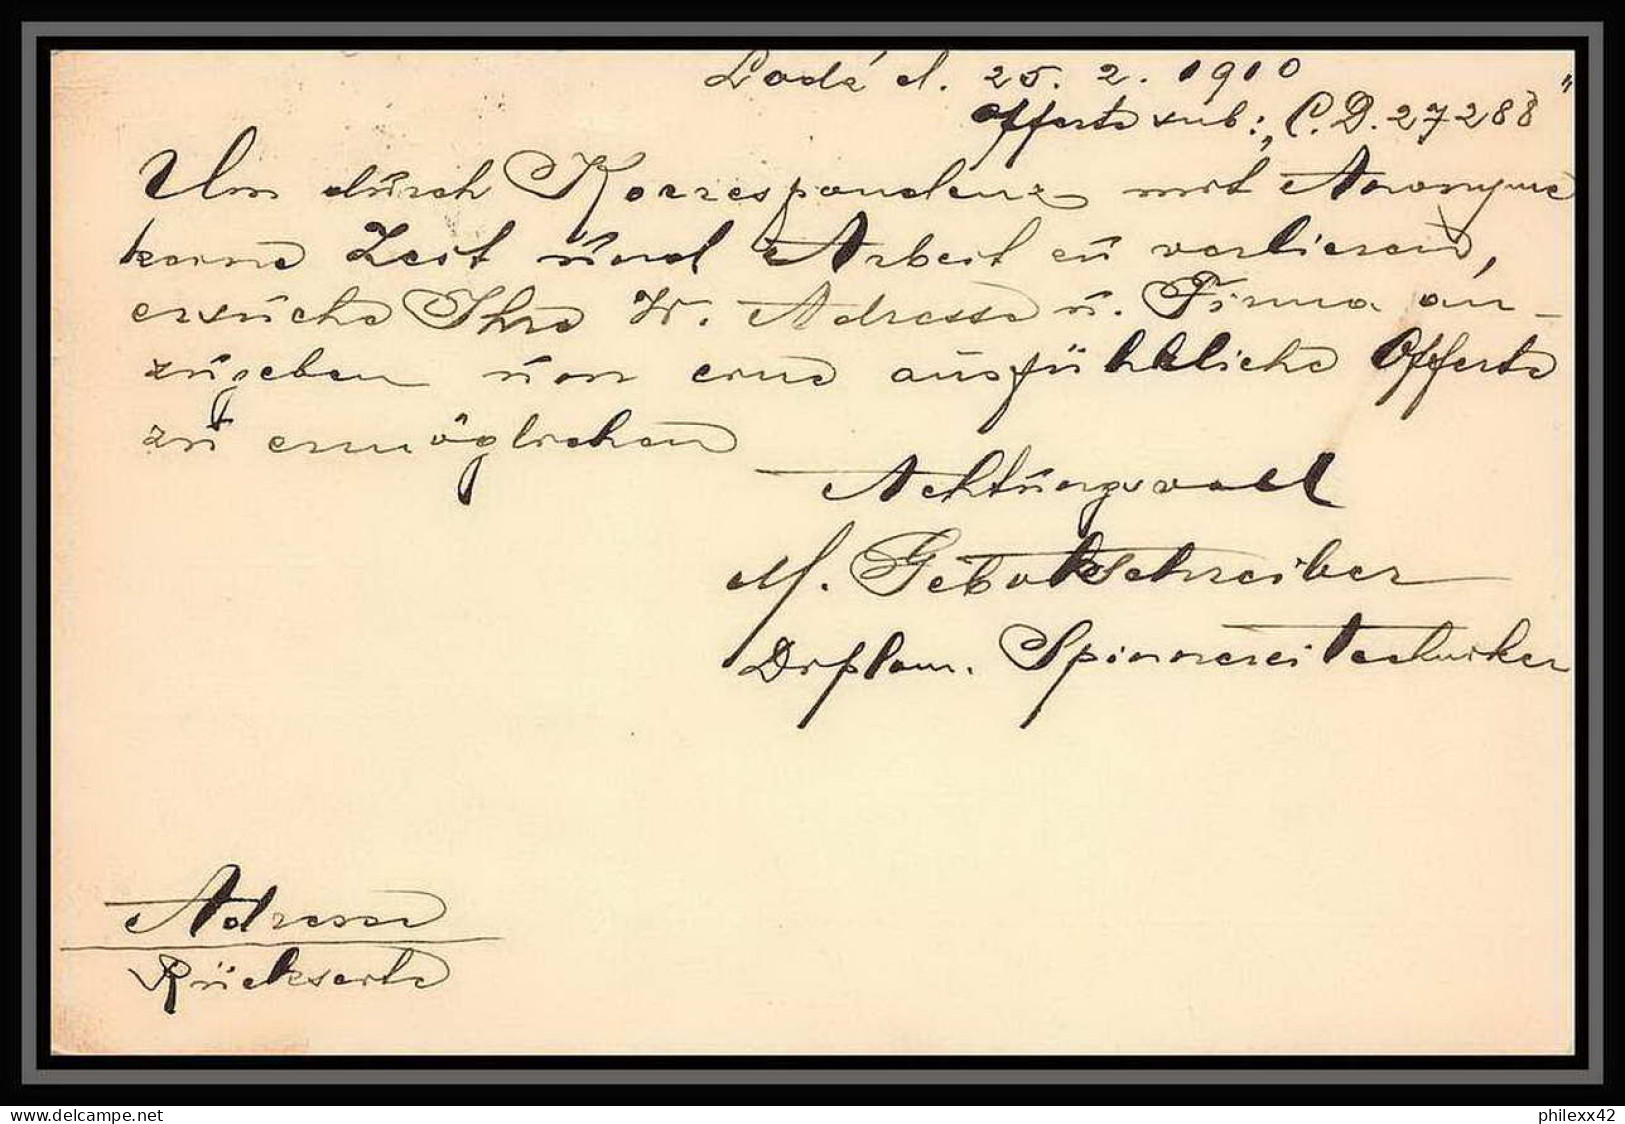 Lodź d. 25. 2. 1910
Offerte sub: „C. D. 27288"
Um durch Korrespondenz mit Anonyme
keine Zeit und Arbeit zu verlieren,
ersuche Ihre W. Adresse u. Firma an-
zugeben um eine ausführliche Offerte
zu ermöglichen
Achtungsvoll
M. Gebotschreiber
Diplom. Spinnereitechniker
Adresse
Rückseite
philexx42.delcampe.net
philexx42